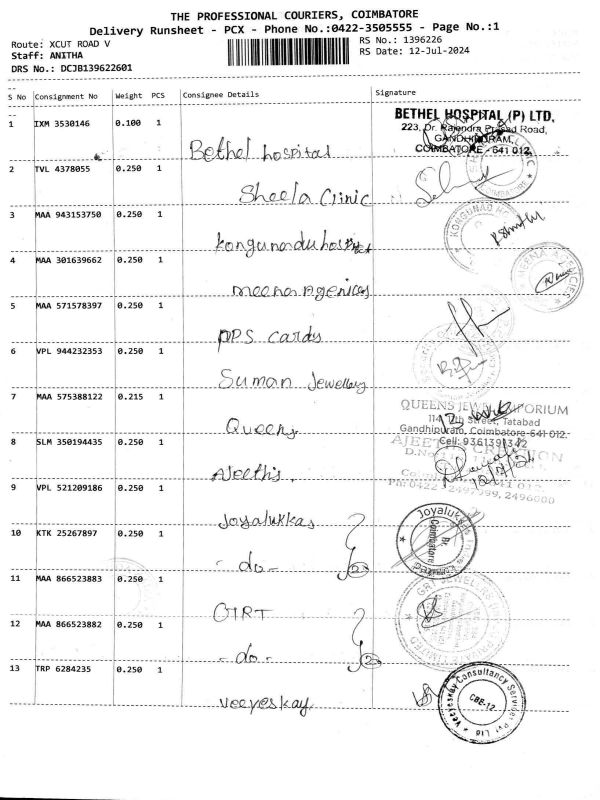 THE PROFESSIONAL COURIERS, COIMBATORE
Delivery Runsheet - PCX - Phone No.:0422-3505555 - Page No.:1
Route: XCUT ROAD V
RS No.: 1396226
Staff: ANITHA
RS Date: 12-Jul-2024
DRS No.: DCJB139622601
S No Consignment No Weight PCS Consignee Details Signature
1 IXM 3530146 0.100 1 Bethel hospital
BETHEL HOSPITAL (P) LTD,
223, Dr. Rajendra Prasad Road,
GANDHIPURAM,
COIMBATORE - 641 012
2 TVL 4378055 0.250 1 Sheela Clinic
3 MAA 943153750 0.250 1 Kongunadu hospital
KONGUNAD
4 MAA 301639662 0.250 1 meena agenices
MEENA AGENCIES
5 MAA 571578397 0.250 1 PPS cards
6 VPL 944232353 0.250 1 Suman Jewellery
7 MAA 575388122 0.215 1 Queens
QUEENS JEWEL EMPORIUM
114, 7th Street, Tatabad
Gandhipuram, Coimbatore-641 012.
Cell: 9361391342
8 SLM 350194435 0.250 1 Ajeeth's.
AJEETH CREATION
12/7/24
Ph: 0422 - 2497999, 2496000
9 VPL 521209186 0.250 1 Joyalukkas
Joyalukkas
Br.
Coimbatore
10 KTK 25267897 0.250 1 - do - 2
11 MAA 866523883 0.250 1 GRT
GRT JEWELLERY
12 MAA 866523882 0.250 1 - do - 2
13 TRP 6284235 0.250 1 veeyeskay
Veeyeskay Consultancy Services Pvt Ltd
CBE-12